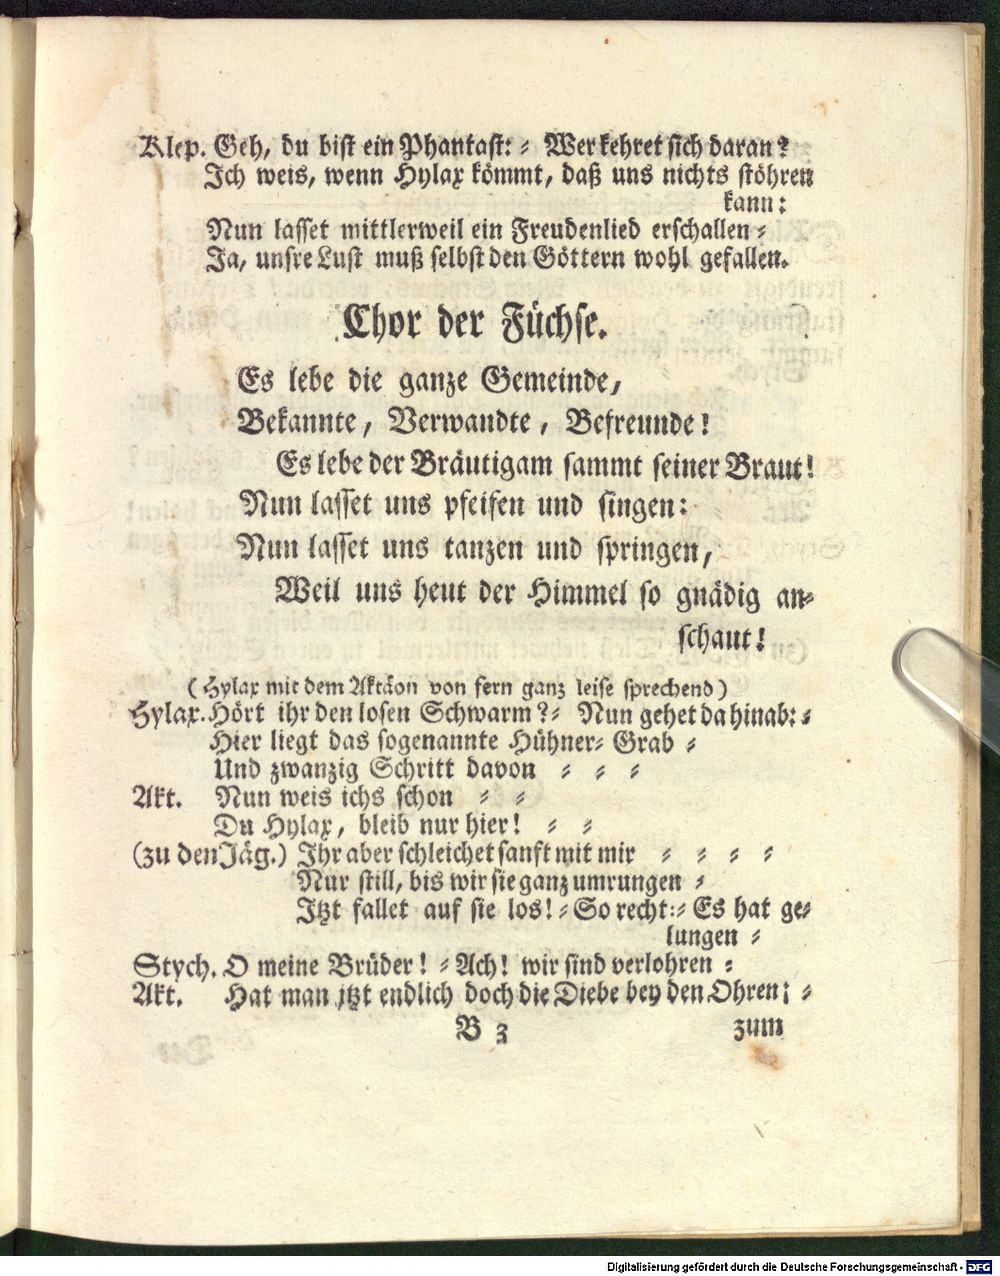 Klep. Geh, du bist ein Phantast: ⸗ Wer kehret sich daran?
Ich weis, wenn Hylax kömmt, daß uns nichts stöhren
kann:
Nun lasset mittlerweil ein Freudenlied erschallen ⸗
Ja, unsre Lust muß selbst den Göttern wohl gefallen.
Chor der Füchse.
Es lebe die ganze Gemeinde,
Bekannte, Verwandte, Befreunde!
Es lebe der Bräutigam sammt seiner Braut!
Nun lasset uns pfeifen und singen:
Nun lasset uns tanzen und springen,
Weil uns heut der Himmel so gnädig an⸗
schaut!
(Hylax mit dem Aktäon von fern ganz leise sprechend)
Hylax. Hört ihr den losen Schwarm? ⸗ Nun gehet da hinab: ⸗
Hier liegt das sogenannte Hühner⸗ Grab ⸗
Und zwanzig Schritt davon ⸗ ⸗ ⸗
Akt. Nun weis ichs schon ⸗ ⸗
Du Hylax, bleib nur hier! ⸗ ⸗
(zu den Jäg.) Ihr aber schleichet sanft mit mir ⸗ ⸗ ⸗ ⸗
Nur still, bis wir sie ganz umrungen ⸗
Itzt fallet auf sie los! ⸗ So recht: ⸗ Es hat ge⸗
lungen ⸗
Stych. O meine Brüder! ⸗ Ach! wir sind verlohren ⸗
Akt. Hat man itzt endlich doch die Diebe bey den Ohren; ⸗
B 3 zum
Digitalisierung gefördert durch die Deutsche Forschungsgemeinschaft - DFG